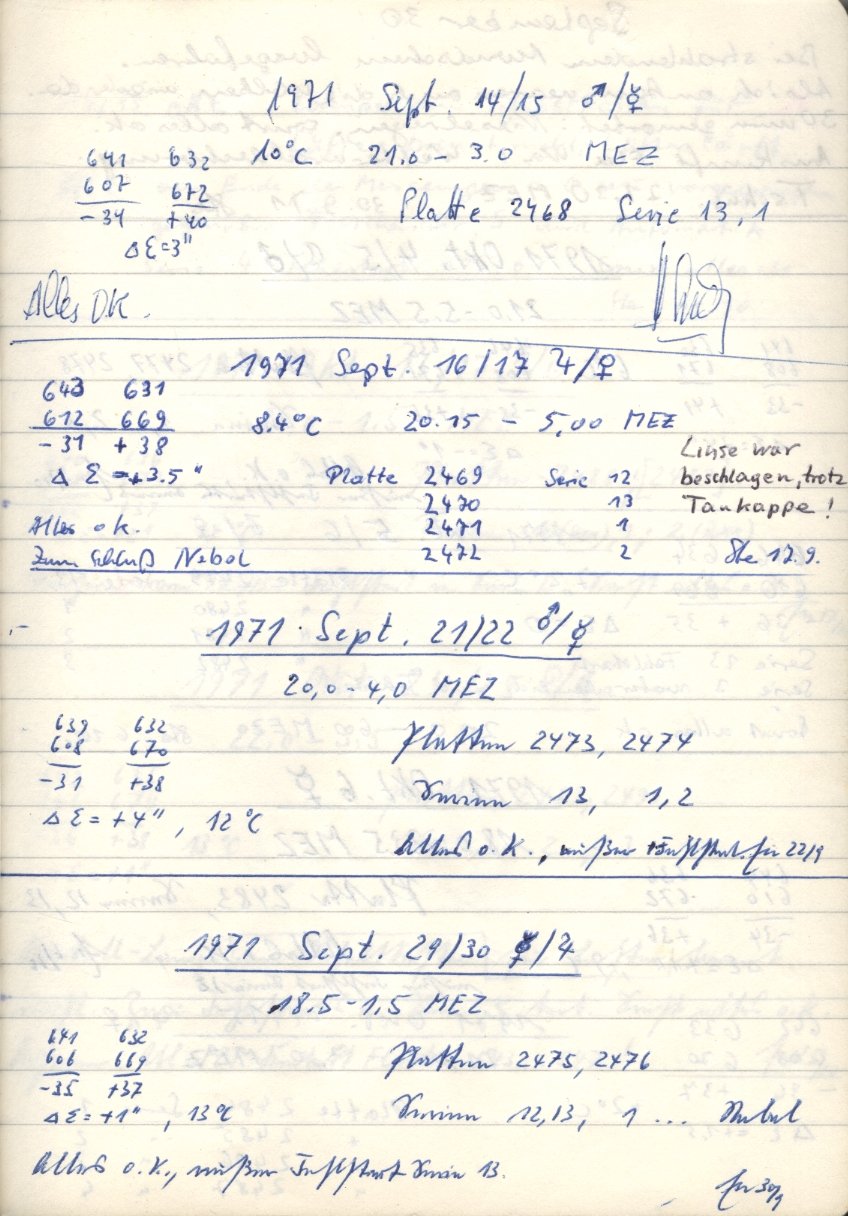 1971 Sept. 14/15 ♂/☿
641 632 10°C 21.0 – 3.0 MEZ
607 672
-34 +40 Platte 2468 Serie 13, 1
Δ Σ = 3"
Alles O.K.
1971 Sept. 16/17 ♃/♀
643 631
612 669 8.4°C 20.15 – 5,00 MEZ
-31 +38 Linse war
Δ Σ = +3.5" Platte 2469 Serie 12 beschlagen, trotz
2470 13 Taukappe!
Alles o.k. 2471 1
Zum Schluß Nebel 2472 2 Ste 17.9.
1971 Sept. 21/22 ♂/☿
20,0 – 4,0 MEZ
639 632
608 670 Platten 2473, 2474
-31 +38
Serien 13, 1,2
Δ Σ = +4", 12°C
Alles o.K., außer Fehlstart. 22/9
1971 Sept. 29/30 ☿/♃
18.5 – 1,5 MEZ
641 632
606 669 Platten 2475, 2476
-35 +37
Δ Σ = +1", 13°C Serien 12,13, 1 ... Nebel
Alles o.K., außer Fehlstart Serie 13.
30/9